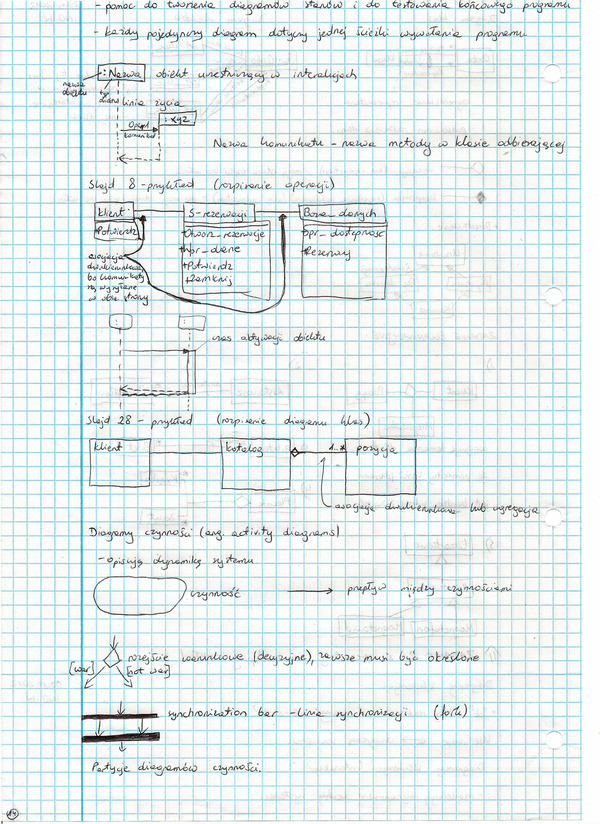 - pomoc do tworzenia diagramów stanów i do testowania końcowego programu
- każdy pojedynczy diagram dotyczy jednej ścieżki wywołania programu
: Nazwa obiekt uczestniczący w interakcjach
nazwa obiektu
linia życia
: xyz
komunikat
Nazwa komunikatu - nazwa metody w klasie odbierającej
Slajd 8 - przykład (rozpisanie operacji)
klient
S-rezerwacji
Baza_danych
+Potwierdz
+Otworz_rezerwacje
+Potwierdz
+Zamknij
+spr_dostępność
+Rezerwuj
asocjacja
dwukierunkowa
bo komunikaty
są wysyłane
w obie strony
czas aktywacji obiektu
Slajd 28 - przykład (rozpisanie diagramu klas)
klient
katalog
1..*
pozycja
asocjacja dwukierunkowa lub agregacja
Diagramy czynności (ang. activity diagrams)
- opisują dynamikę systemu
czynność
przepływ między czynnościami
rozejście warunkowe (decyzyjne), zawsze musi być określone
[war]
[not war]
synchronization bar - linia synchronizacji (fork)
Partycje diagramów czynności.